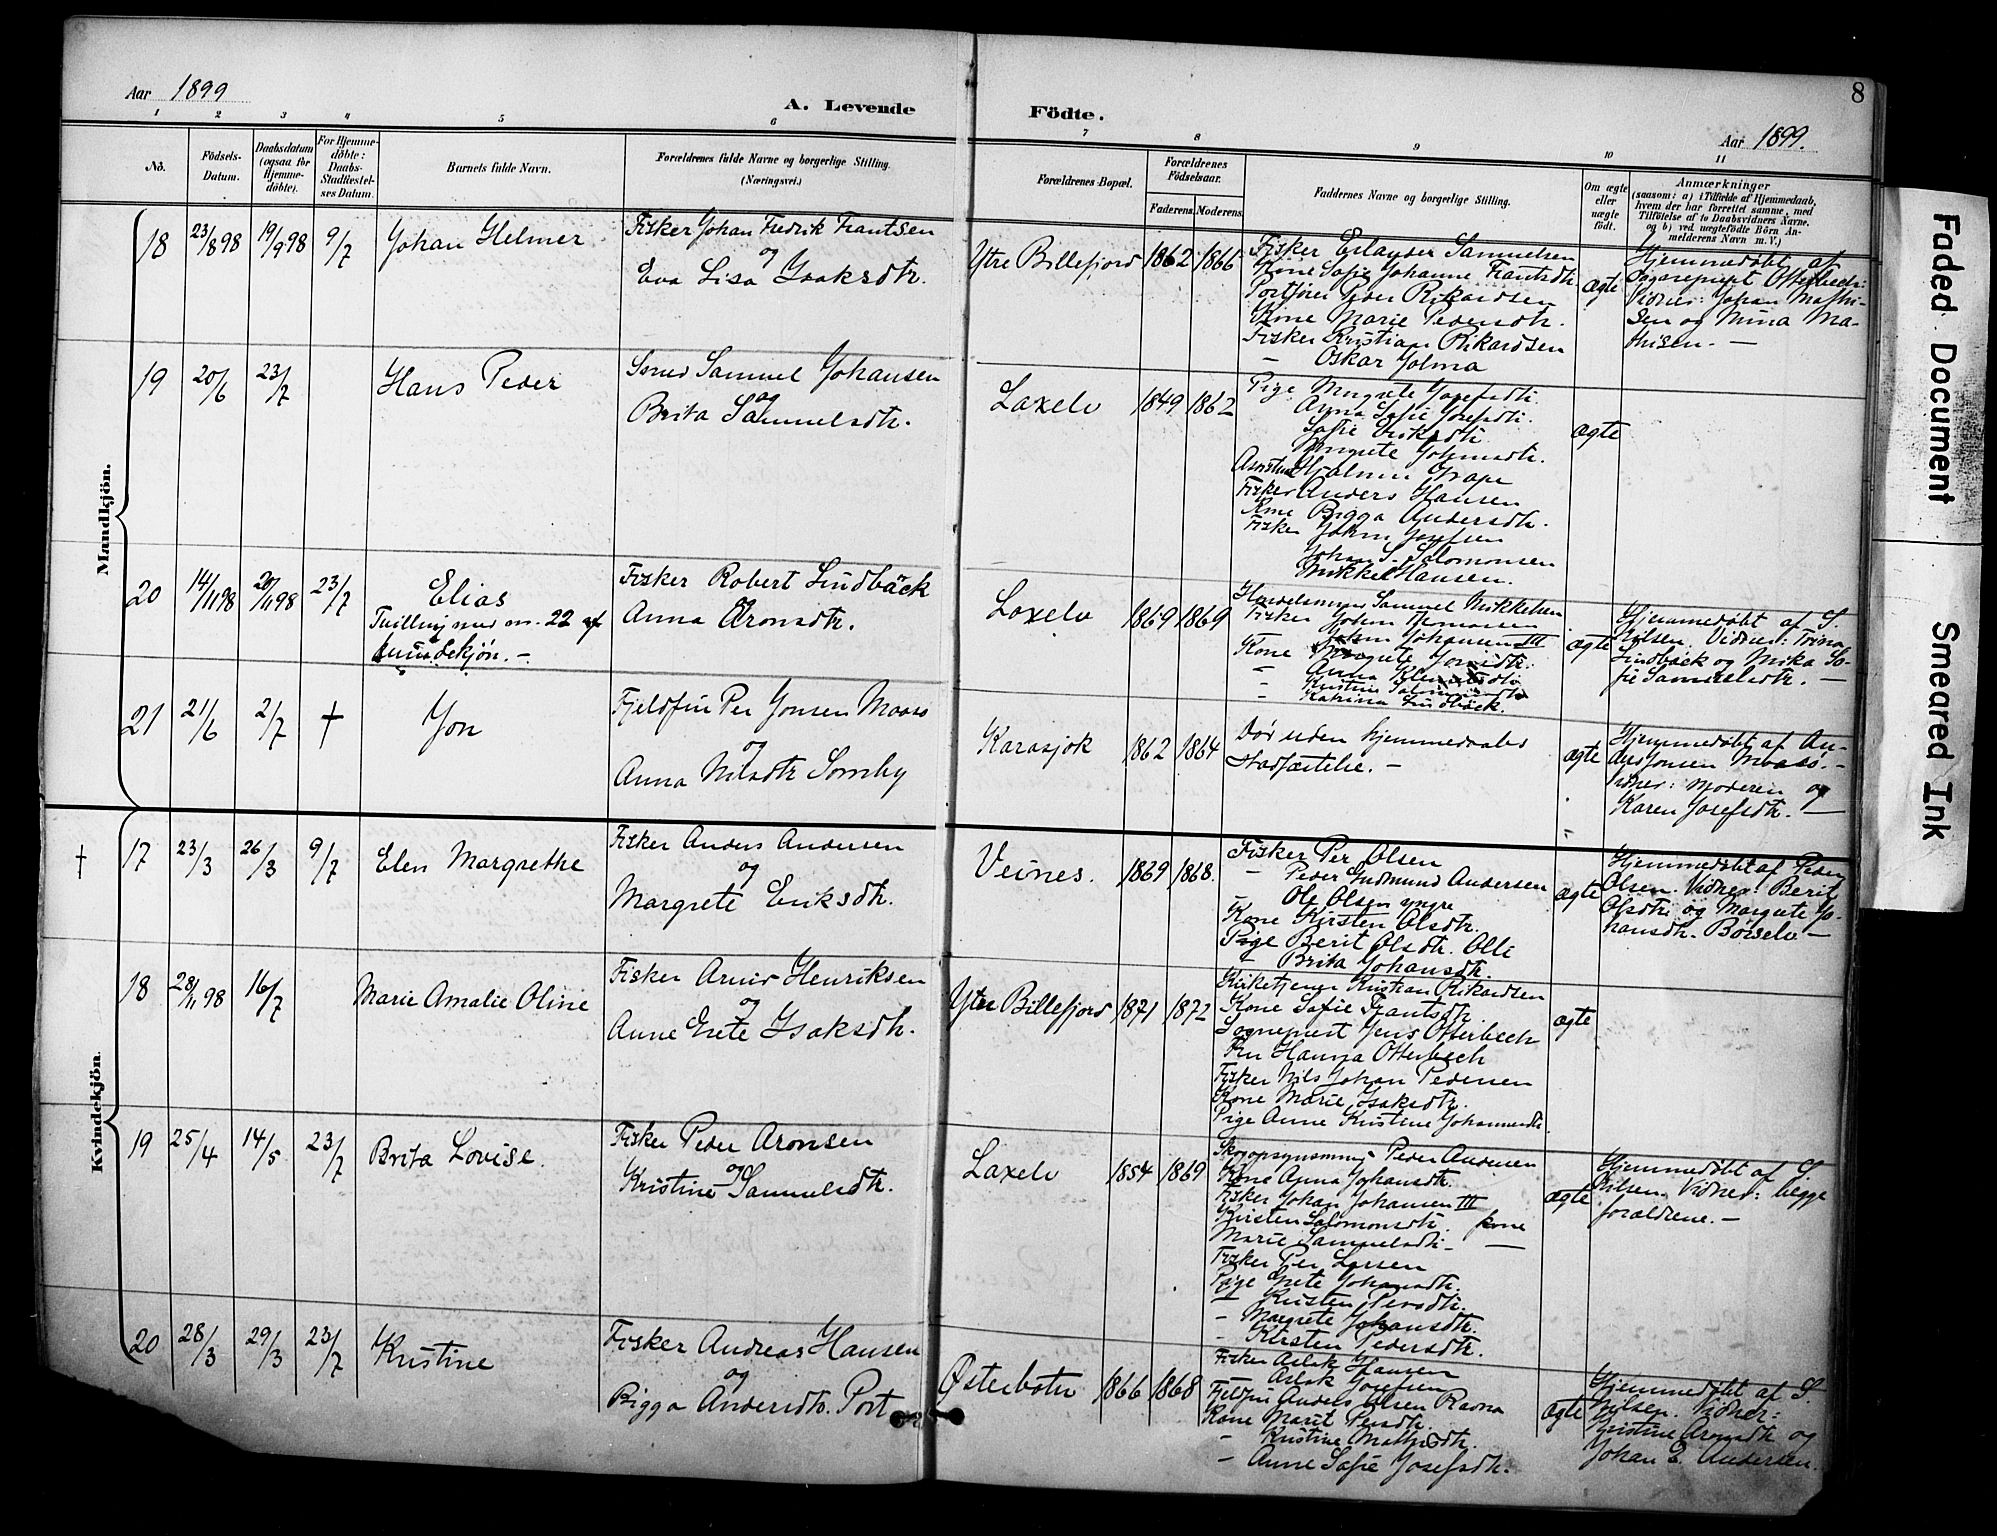 Aar 1899
A. Levende
Födte.
Aar 1899.
8
1 2 3 4 5 6 7 8 9 10 11
No.
Födsels-
Datum.
Daabsdatum
(ogsaa for
Hjemme-
döbte).
For Hjemme-
döbte:
Daabs-
Stadfæstel-
ses Datum.
Barnets fulde Navn.
Forældrenes fulde Navne og borgerlige Stilling.
(Næringsvei.)
Forældrenes Bopæl.
Forældrenes
Födselsaar.
Faderens.
Moderens.
Faddernes Navne og borgerlige Stilling.
Om ægte
eller
uægte
födt.
Anmærkninger
(saasom: a) i Tilfælde af Hjemmedaab,
hvem der har forrettet samme, med
Tilföielse af to Daabsvidners Navne,
og b) ved uægtefödte Börn An-
melderens Navn m. V.)
Mandkjön.
18
23/8 98
19/9 98
9/7
Johan Helmer
Fisker Johan Fredrik Frantsen
og
Eva Lisa Isaksdtr.
Ytre Billefjord
1862
1866
Fisker Samuelsen
Kone Sofie Johanne Frantsdtr.
Peder Rikardsen
Kone Marie Pedersdtr.
Fisker Kristian Rikardsen
– Oskar Jolma
ægte
Hjemmedøbt af
Sogneprest Otterbech.
Vidner: Johan Mathi-
sen og Mina Ma-
thisen. –
19
20/6
23/7
Hans Peder
Samuel Johansen
og
Brita Samuelsdtr.
Laxelv
1849
1862
Pige Margrete Josefsdtr.
Anna Sofie Josefsdtr.
Sofie
Margrete Johnsdtr.
Hjalmar Grape
Fisker Anders Hansen
Kone Bigga Andersdtr.
Fisker John Josefsen
Johan S. Salomonsen
Mikkel Hansen.
ægte
20
14/11 98
20/11 98
23/7
Elias
Tvilling med no. 22 af
Kvindekjön. –
Fisker Robert Lindbäck
Anna Aronsdtr.
Laxelv
1869
1869
Handelsmand Samuel Mikkelsen
Fisker John
John Johansen III
Kone Margrete
– Anna
– Kristine
– Katrina Lindbäck.
ægte
Hjemmedøbt af S.
Nilsen. Vidner: Trina
Lindbäck og Mika So-
fie Samuelsdtr. –
21
21/6
2/7
†
Jon
Fjeldfin Per Jonsen Maaso
og
Anna Nilsdtr Somby
Karasjok
1862
1864
Dør uden hjemmedaabs
stadfæstelse. –
ægte
Hjemmedøbt af An-
ders Jonsen Maaso. –
Vidner: Moderen og
Karen Josefsdtr. –
Kvindekjön.
†
17
23/3
26/3
9/7
Elen Margrethe
Fisker Anders Andersen
og
Margrete Eriksdtr.
Veines.
1869
1868.
Fisker Per Olsen
– Peder Gudmund Andersen
Ole Olsen yngre
Kone Kirsten Olsdtr.
Pige Berit Olsdtr. Olli
– Brita Johansdtr.
ægte
Hjemmedøbt af Peder
Olsen. Vidner: Berit
Olsdtr. og Margrete Jo-
hansdtr. Børselv –
18
28/11 98
16/7
Marie Amalie Oline
Fisker Henriksen
og
Anne Grete Isaksdtr.
Ytre Billefjord
1871
1872
Kirketjener Kristian Rikardsen
Kone Sofie Frantsdtr.
Sogneprest Jens Otterbech
Fru Hanna Otterbech
Fisker Nils Johan Pedersen
Kone Marie Isaksdtr.
Pige Anne Kristine Johannesdtr.
ægte
19
25/4
14/5
23/7
Brita Lovise.
Fisker Peder Aronsen
og
Kristine Samuelsdtr.
Laxelv
1854
1869
Skogopsynsmand Peder Andersen
Kone Anna Johansdtr.
Fisker Johan Johansen III
Kirsten Salomonsdtr. kone
Marie Samuelsdtr. –
Fisker Per Larsen
Pige Grete Johansdtr.
– Kirsten Persdtr.
– Margrete Johansdtr.
– Kirsten Pedersdtr.
ægte
Hjemmedøbt af S.
Nilsen. Vidner: begge
forældrene. –
20
28/3
29/3
23/7
Kristine
Fisker Andreas Hansen
og
Bigga Andersdtr. Port
Østerbotn
1866
1868
Fisker Aslak Hansen
Aslak Josefsen
Fjeldfin Anders Olsen Ravna
Kone Marit Persdtr.
– Kristine Mathisdtr.
– Anne Sofie Josefsdtr.
ægte
Hjemmedøbt af S.
Nilsen. Vidner:
Kristine Aronsdtr. og
Johan E. Andersen.
Faded Document
Smeared Ink